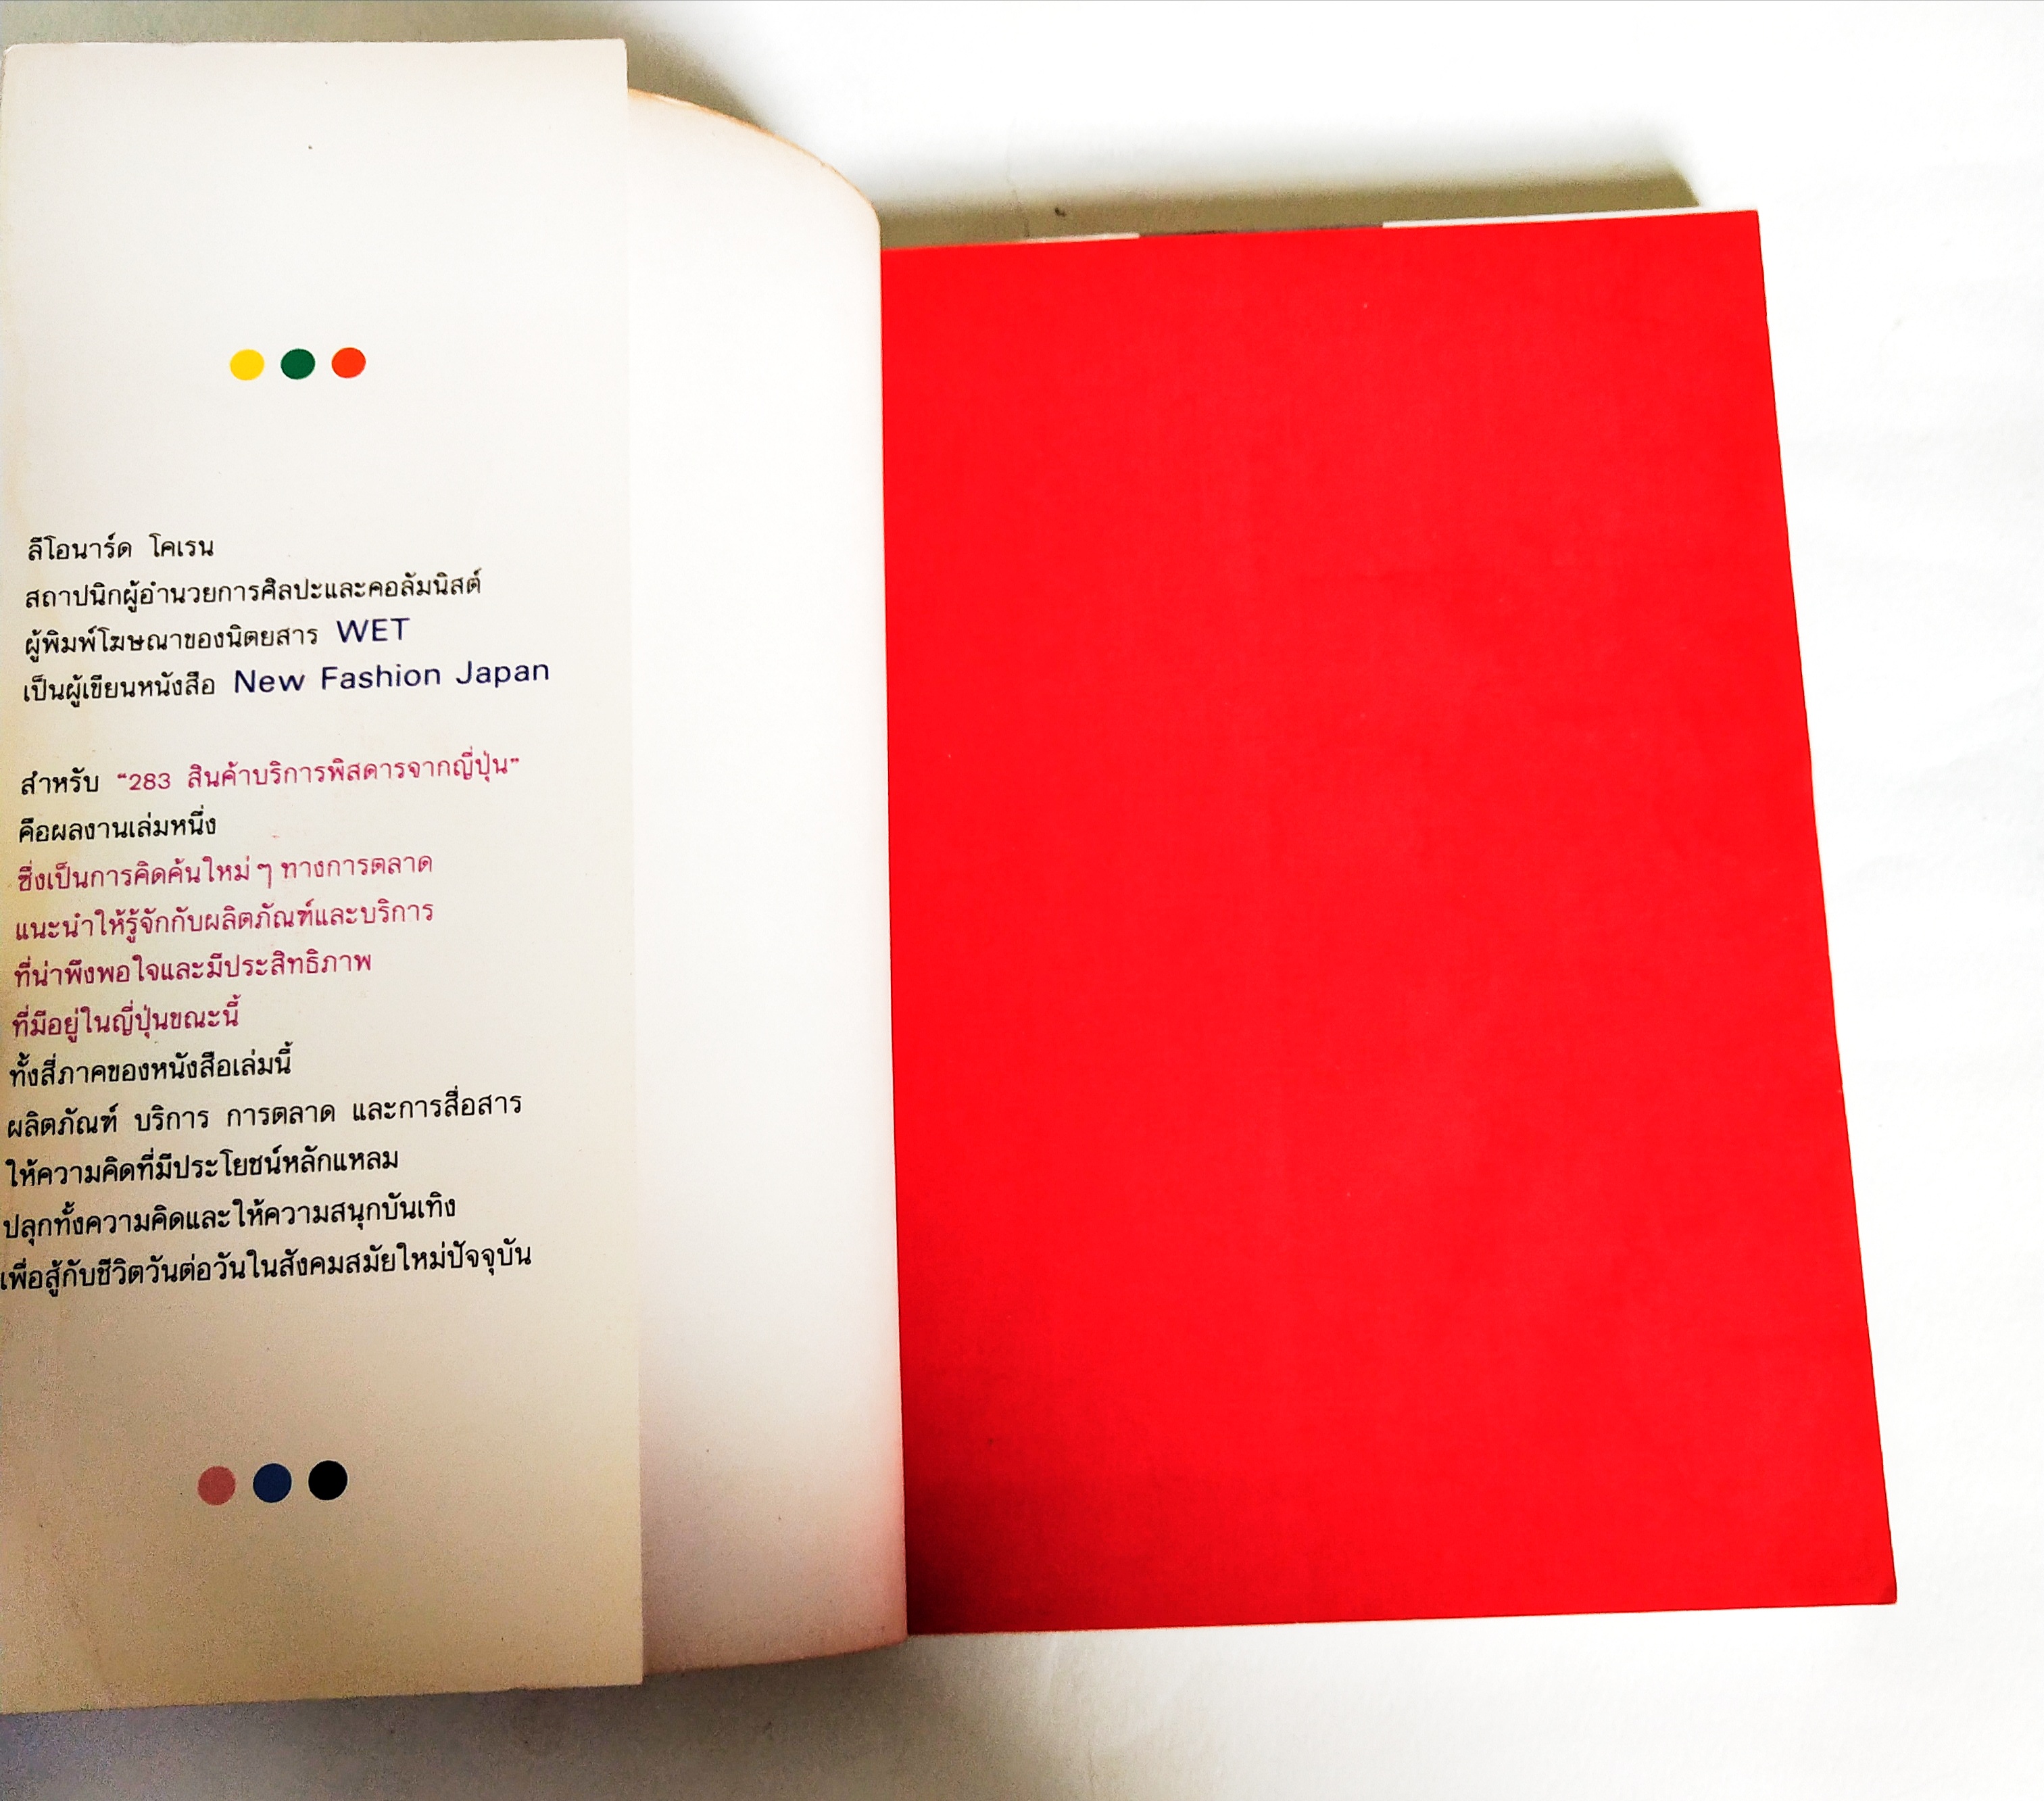 ลีโอนาร์ด โคเรน
สถาปนิกผู้อำนวยการศิลปะและคอลัมนิสต์
ผู้พิมพ์โฆษณาของนิตยสาร WET
เป็นผู้เขียนหนังสือ New Fashion Japan
สำหรับ “283 สินค้าบริการพิสดารจากญี่ปุ่น”
คือผลงานเล่มหนึ่ง
ซึ่งเป็นการคิดค้นใหม่ ๆ ทางการตลาด
แนะนำให้รู้จักกับผลิตภัณฑ์และบริการ
ที่น่าพึงพอใจและมีประสิทธิภาพ
ที่มีอยู่ในญี่ปุ่นขณะนี้
ทั้งสี่ภาคของหนังสือเล่มนี้
ผลิตภัณฑ์ บริการ การตลาด และการสื่อสาร
ให้ความคิดที่มีประโยชน์หลักแหลม
ปลุกทั้งความคิดและให้ความสนุกบันเทิง
เพื่อสู้กับชีวิตวันต่อวันในสังคมสมัยใหม่ปัจจุบัน